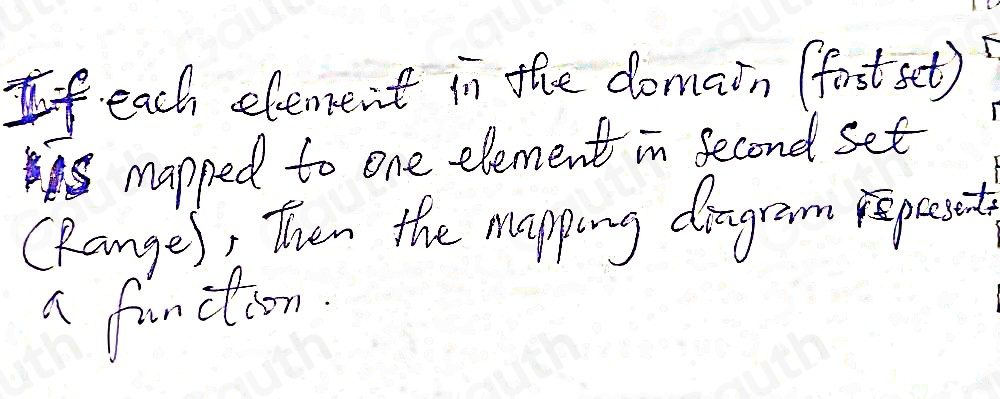 If each element in the domain (first set)
is mapped to one element in second set
(Range), Then the mapping diagram represents
a function.